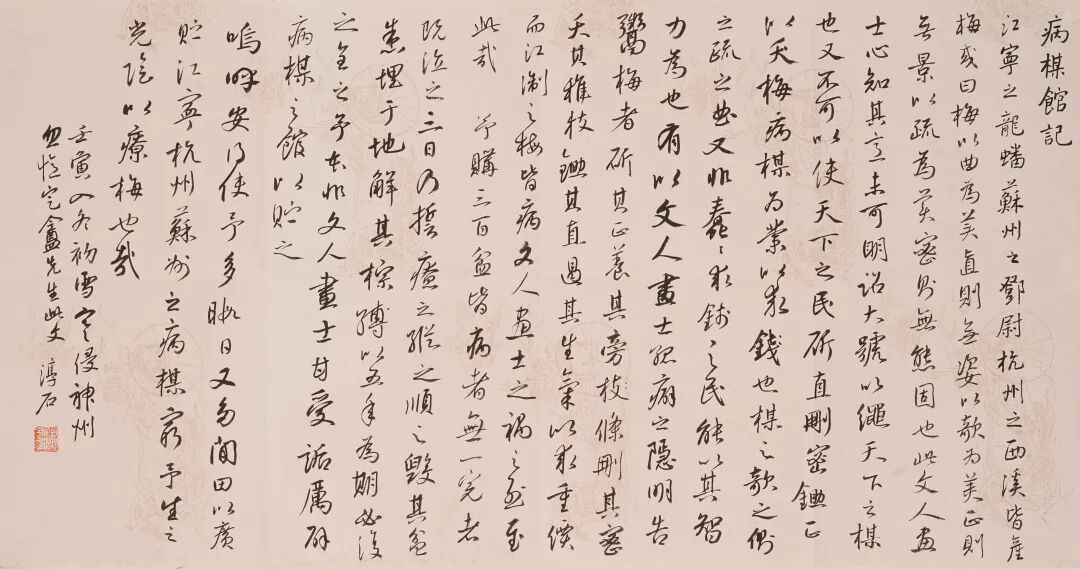 病楳館記
江寧之龍蟠蘇州之鄧尉杭州之西溪皆產
梅或曰梅以曲為美直則無姿以欹為美正則
無景以疏為美密則無態固也此文人畫
士心知其意未可明詔大號以繩天下之楳
也又不可以使天下之民斫直刪密鋤正
以夭梅病楳為業以求錢也楳之欹之側
之疏之曲又非蠢々求錢之民能以其智
力為也有以文人畫士孤癖之隱明告
鬻梅者斫其正養其旁枝條刪其密
夭其稚枝鋤其直遏其生氣以求重價
而江浙之梅皆病文人畫士之禍之烈至
此哉 予購三百盆皆病者無一完者
既泣之三日乃誓療之縱之順之毀其盆
悉埋于地解其棕縛以五年為期必復
之全之予本非文人畫士甘受詬厲闢
病楳之館以貯之
嗚呼安得使予多暇日又多閒田以廣
貯江寧杭州蘇州之病楳窮予生之
光陰以療梅也哉
壬寅入冬初雪寒侵神州
忽憶定盦先生此文 淳石